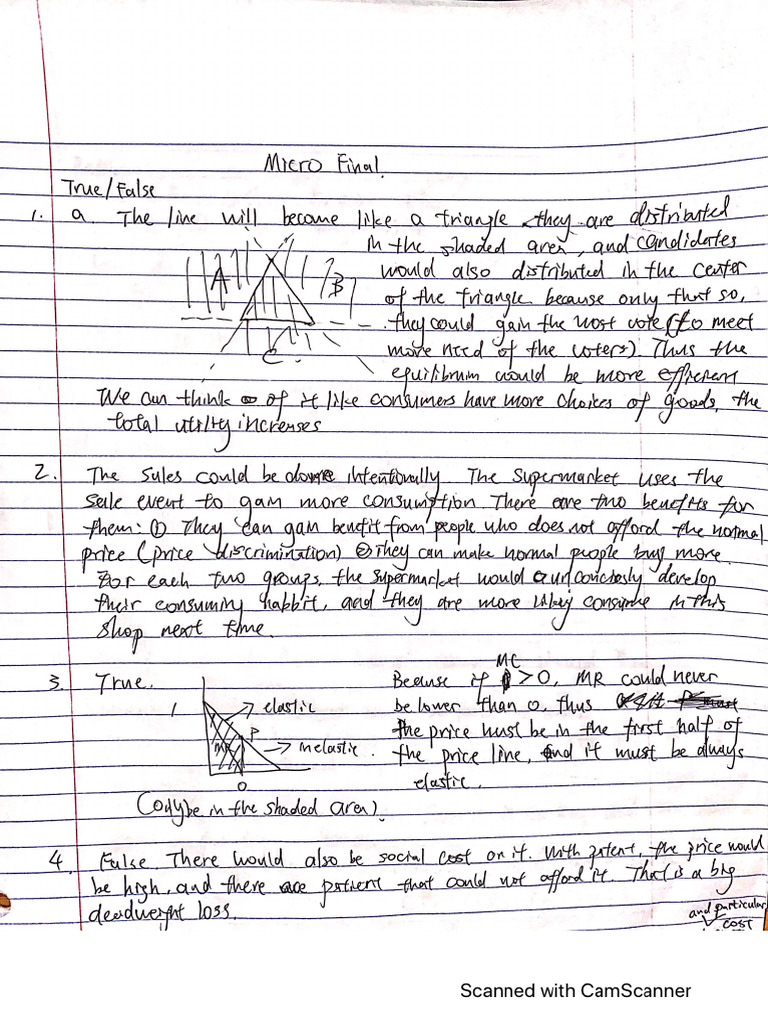 Micro Final.
True/False
1. a. The line will become like a triangle, they are distributed
in the shaded area, and candidates
would also distributed in the center
of the triangle because only that so,
they could gain the most vote (to meet
more need of the voters). Thus the
equilibrium would be more efficient
A
B
C
We can think of it like consumers have more choices of goods, the
total utility increases
2. The sales could be done intentionally. The supermarket uses the
sale event to gain more consumption. There are two benefits for
them: ① They can gain benefit from people who does not afford the normal
price (price discrimination) ② They can make normal people buy more.
For each two groups, the supermarket would unconciously develop
their consuming habbit, and they are more likely consume in this
shop next time.
3. True.
MC
Because if > 0, MR could never
be lower than 0, thus
the price must be in the first half of
the price line, and it must be always
elastic.
1
elastic
P
MR
inelastic.
0
(only be in the shaded area).
4. False. There would also be social cost on it. With patent, the price would
be high, and there are patient that could not afford it. That is a big
deadweight loss.
and particular
cost
Scanned with CamScanner